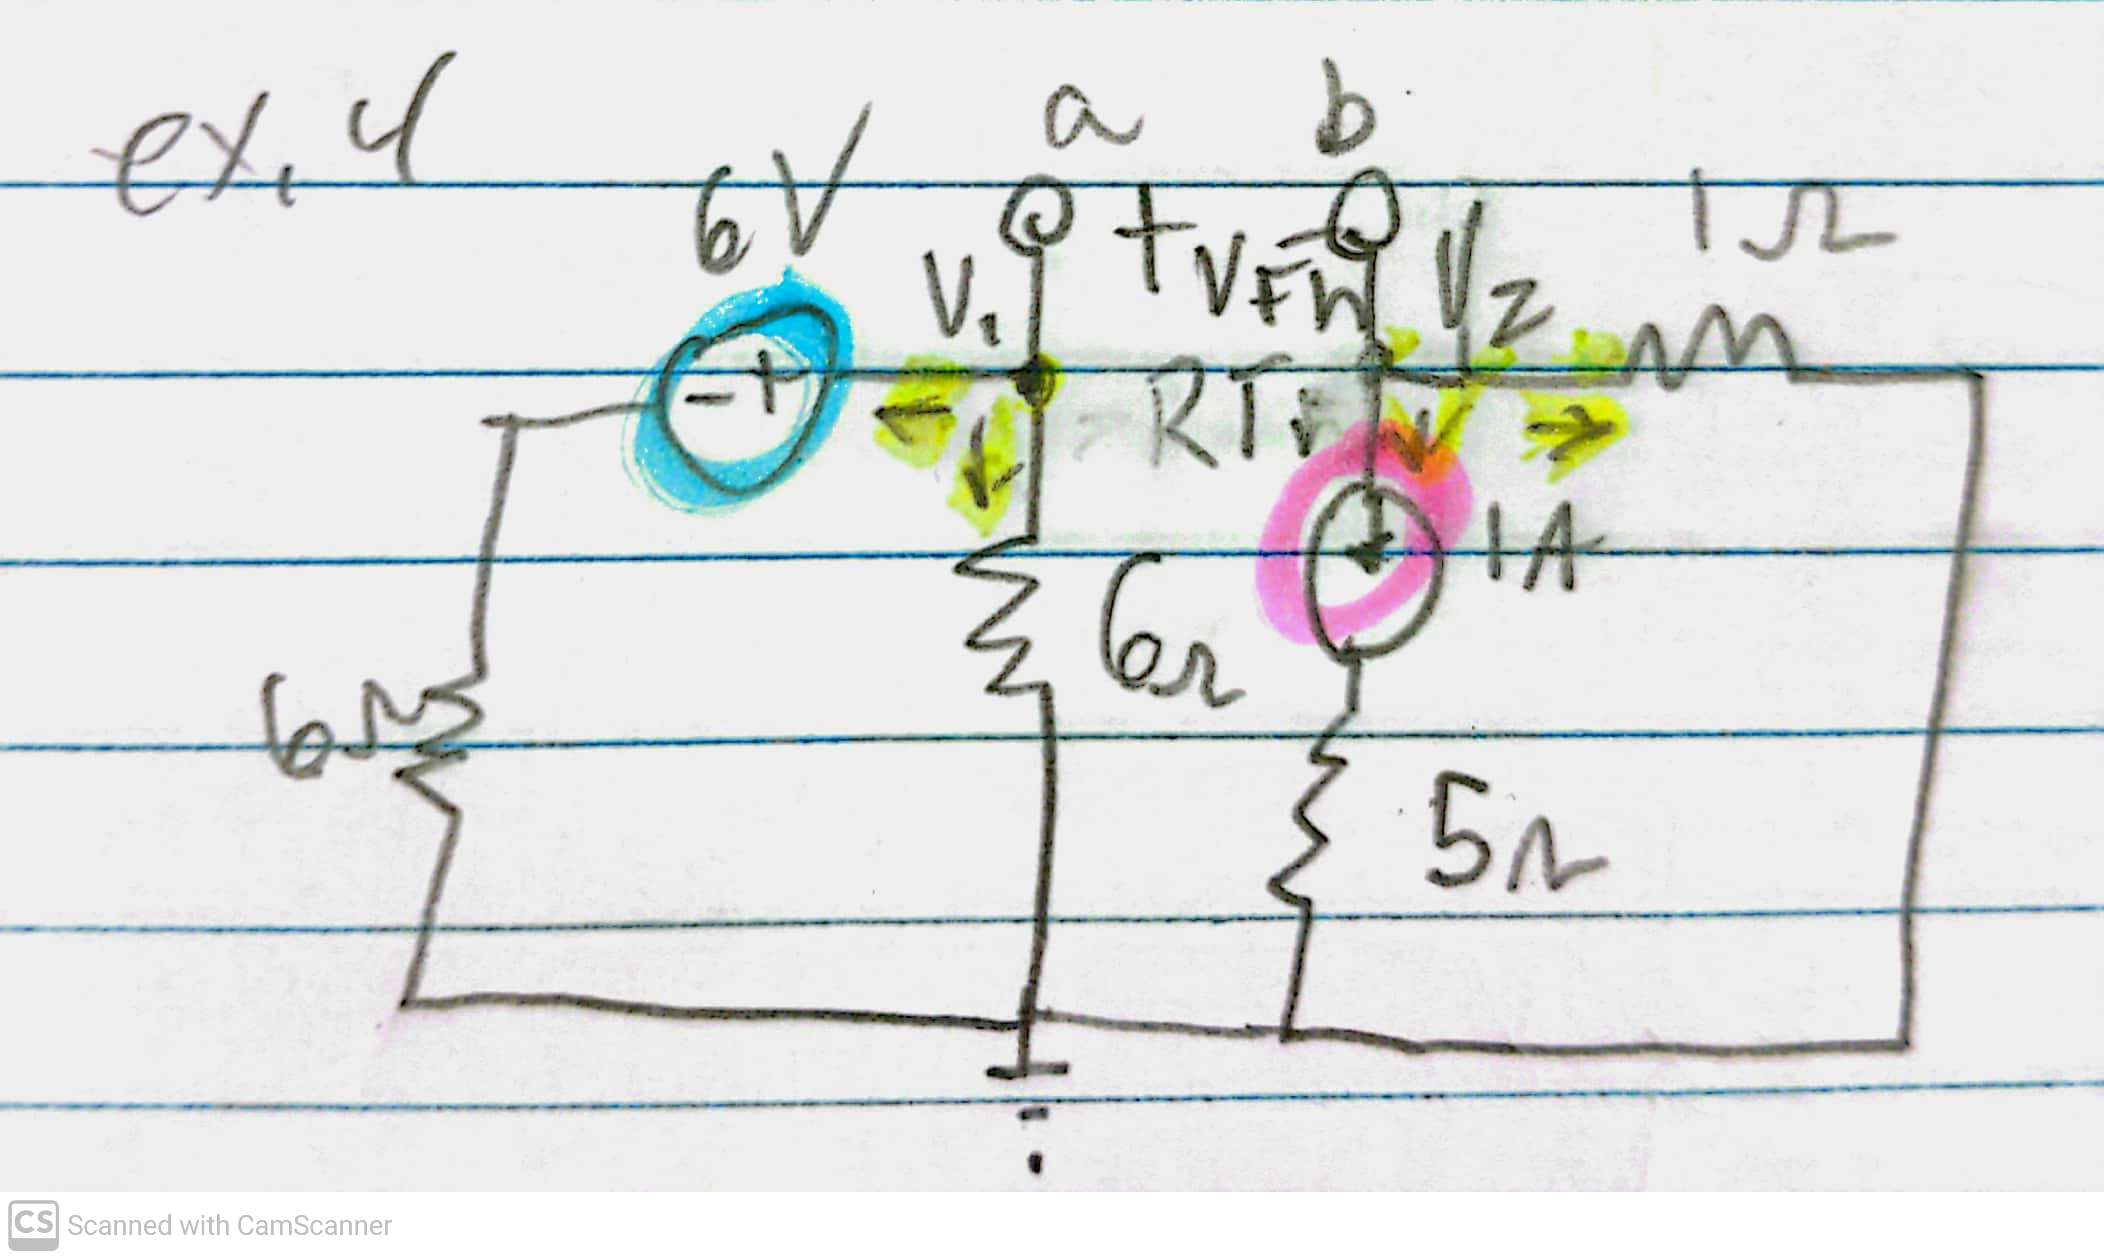 ex. 4
a b
6V
V1 + VTh - V2 1Ω
- +
RTh
1A
6Ω
6Ω
5Ω
CS Scanned with CamScanner